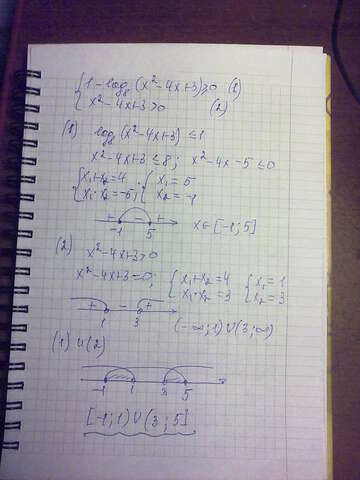 { 1 - log₈(x² - 4x + 3) ≥ 0 (1)
{ x² - 4x + 3 > 0 (2)
(1) log₈(x² - 4x + 3) ≤ 1
x² - 4x + 3 ≤ 8; x² - 4x - 5 ≤ 0
{ x₁ + x₂ = 4 { x₁ = 5
{ x₁ · x₂ = -5; { x₂ = -1
+ - +
-1 5 x ∈ [-1; 5]
(2) x² - 4x + 3 > 0
x² - 4x + 3 = 0; { x₁ + x₂ = 4 { x₁ = 1
{ x₁ · x₂ = 3 { x₂ = 3
+ - +
1 3 (-∞; 1) U (3; ∞)
(1) и (2)
-1 1 3 5
[-1; 1) U (3; 5]